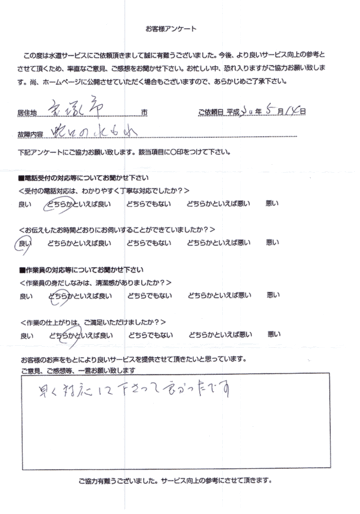 お客様アンケート
この度は水道サービスにご依頼頂きまして誠に有難うございました。今後、より良いサービス向上の参考と
させて頂くため、率直なご意見、ご感想をお聞かせ下さい。お忙しい中、恐れ入りますがご協力お願い致しま
す。尚、ホームページに公開させていただく場合もございますので、あらかじめご了承下さい。
居住地 宝塚市 市 ご依頼日 平成30年5月14日
故障内容 蛇口の水もれ
下記アンケートにご協力お願い致します。該当項目に〇印をつけて下さい。
■電話受付の対応等についてお聞かせ下さい
<受付の電話対応は、わかりやすく丁寧な対応でしたか?>
良い どちらかといえば良い どちらでもない どちらかといえば悪い 悪い
<お伝えしたお時間どおりにお伺いすることができていましたか?>
良い どちらかといえば良い どちらでもない どちらかといえば悪い 悪い
■作業員の対応等についてお聞かせ下さい
<作業員の身だしなみは、清潔感がありましたか?>
良い どちらかといえば良い どちらでもない どちらかといえば悪い 悪い
<作業の仕上がりは、ご満足いただけましたか?>
良い どちらかといえば良い どちらでもない どちらかといえば悪い 悪い
お客様のお声をもとにより良いサービスを提供させて頂きたいと思っています。
ご意見、ご感想等、一言お願い致します
早く対応して下さって良かったです
ご協力有難うございました。サービス向上の参考にさせて頂きます。